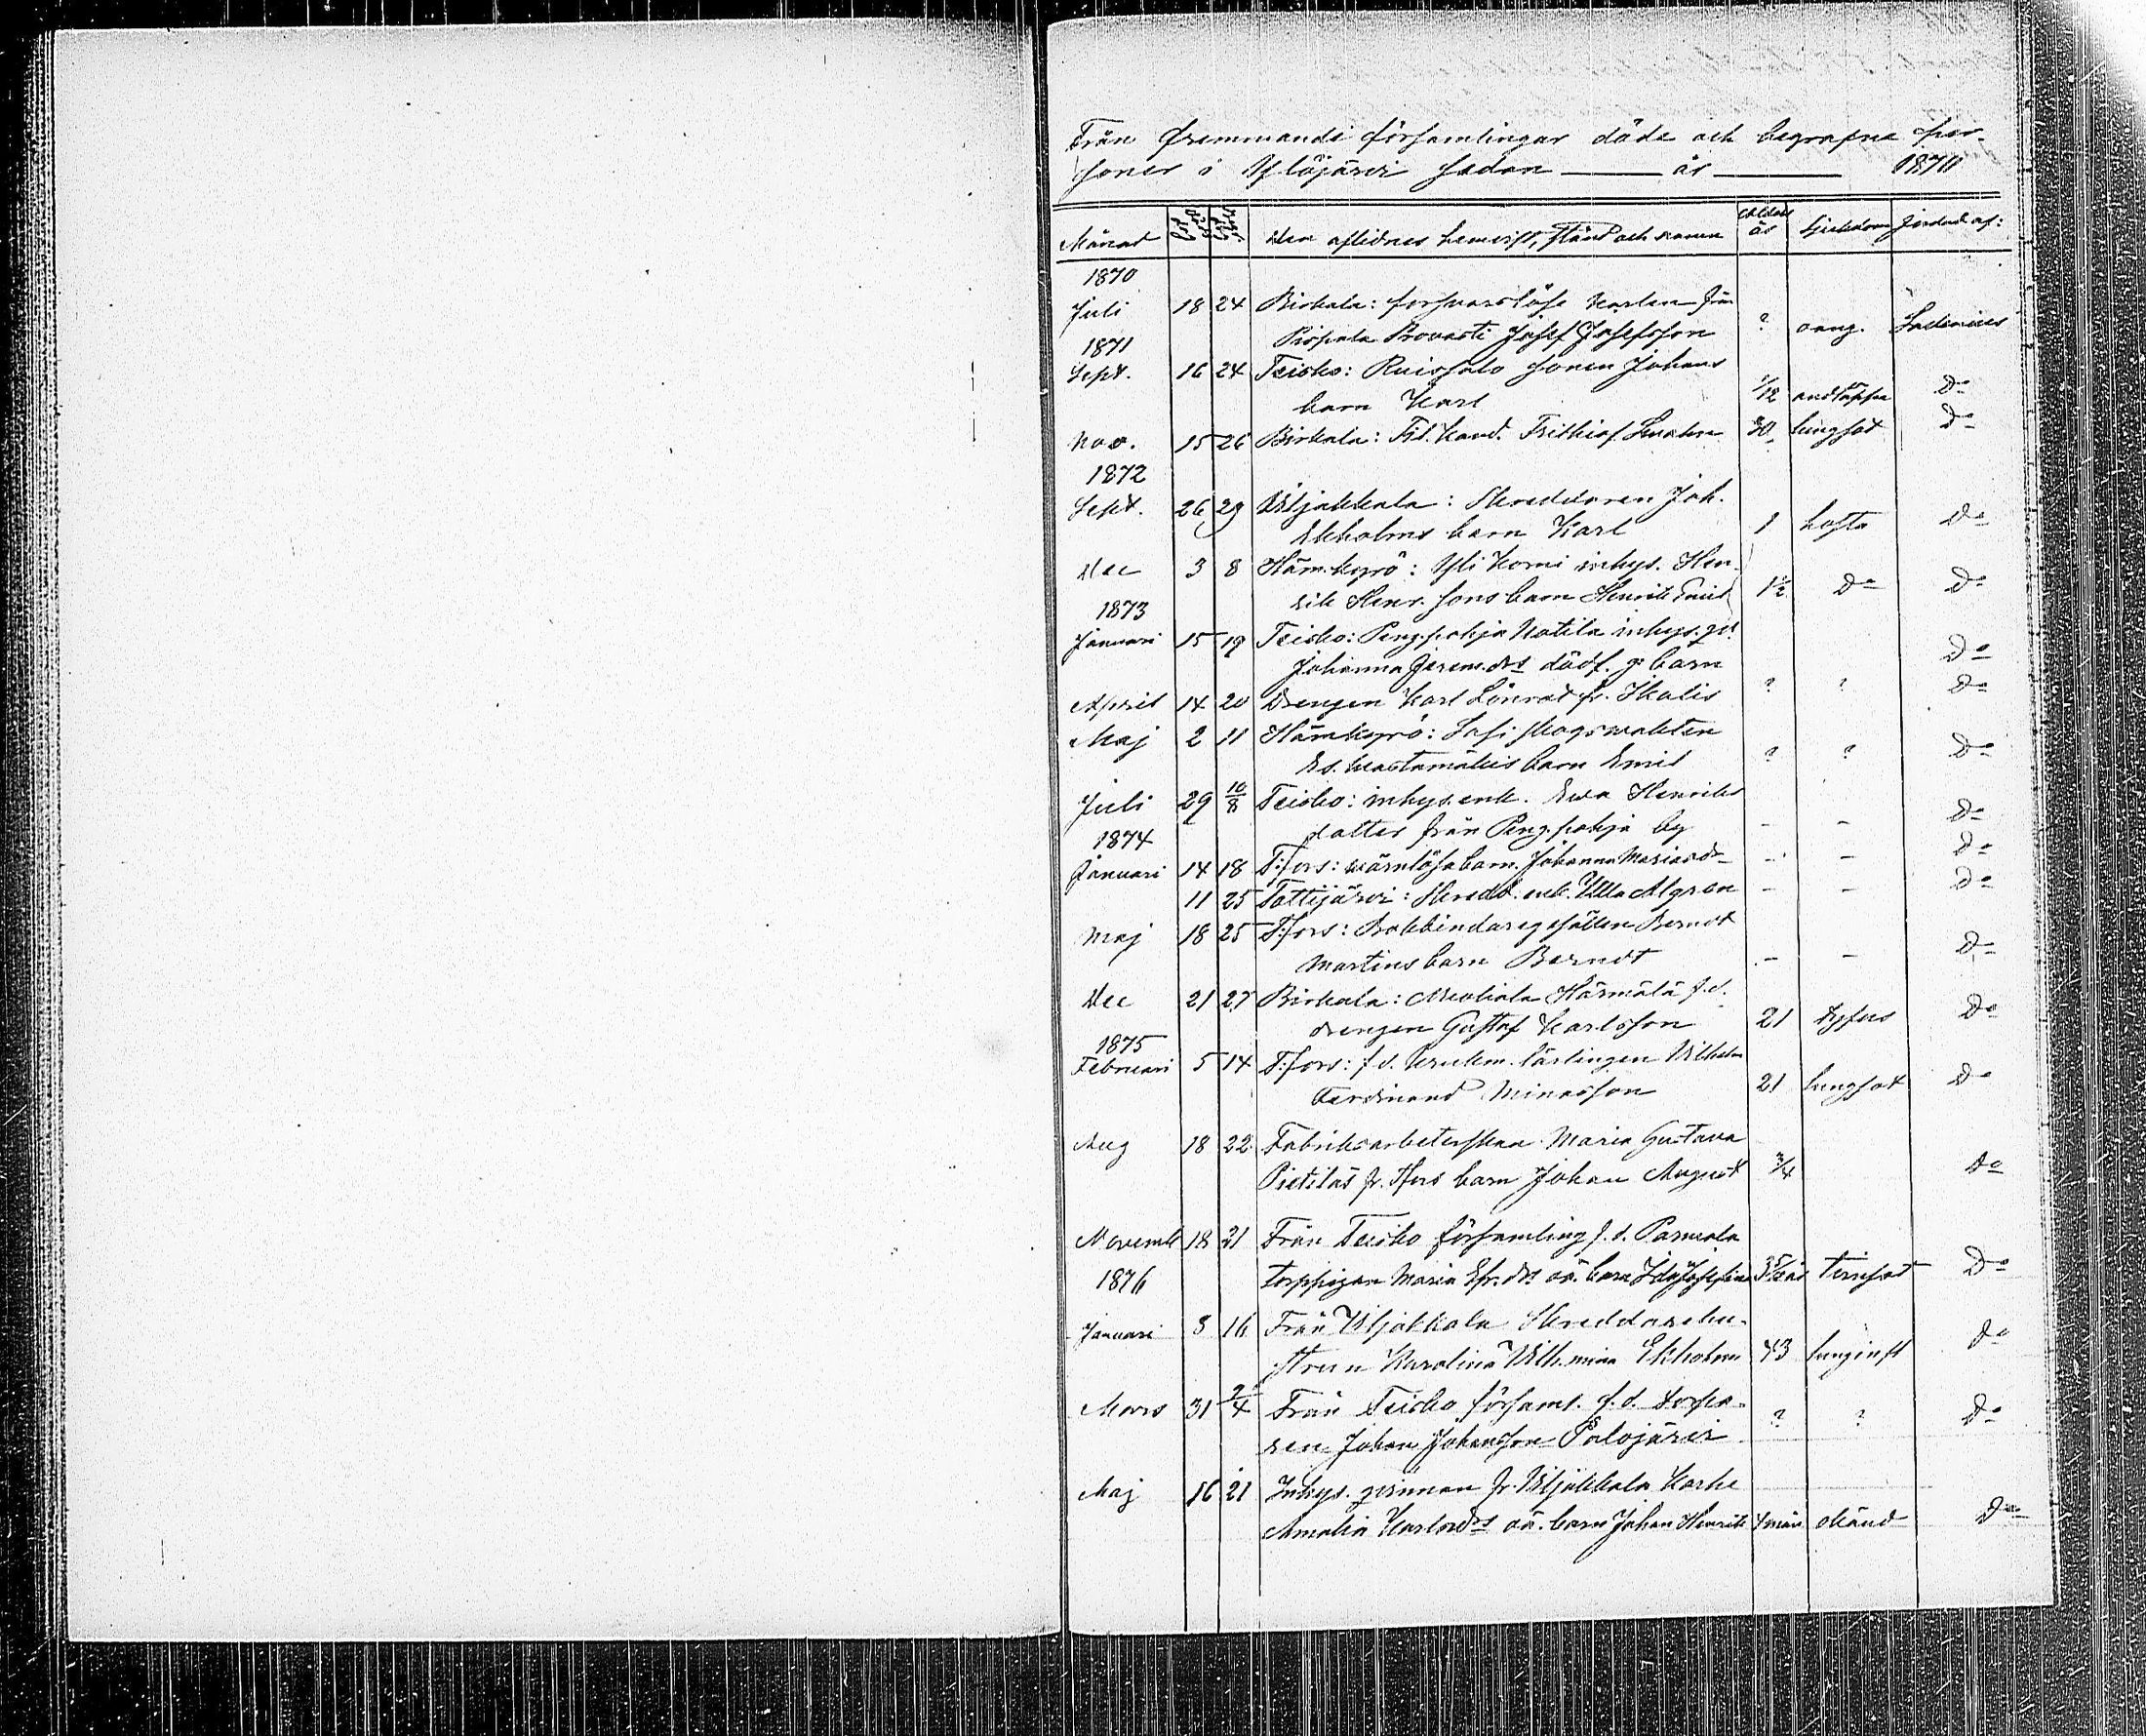 Från fremmande församlingar döde och begrafne per-
soner i Ylöjärvi sedan år 1870
Månad Den aflidnes hemvist, stånd och namn Ålder år Sjukdom Jordad af:
1870
Juli 18 24 Birkala: försvarslöse karlen från
Pispala Provasti Josef Josefsson ? oang.
1871
Sept. 16 24 Teisko: Ruissalo sonen Johans
barn Karl 1/12 andtäppa Do
Nov. 15 26 Birkala: Fil. Kand. Frithiof 30 lungsot Do
1872
Sept. 26 29 Wiljakkala: Skreddaren Joh.
Ekholms barn Karl 1 hosta Do
Dec 3 8 Häm.kyrö: Yli Komi inhys. Hen-
rik Henr. sons barn Henrik Emil 1½ Do Do
1873
Januari 15 19 Teisko: Peng.pohja Kotila inhys. qv.
Johanna Jerem.drs dödf. g. barn Do
April 14 20 Drengen Karl Lönrot fr. Ikalis ? ? Do
Maj 2 11 Hämkyrö: Sasi skogswakten
Es. barn Emil ? ? Do
Juli 29 10/8 Teisko: inhys. enk. Ewa Henriks
dotter från Peng.pohja by - - Do
1874
Januari 14 18 T:fors: wärnlösa barn Johanna Mariasdr - - Do
11 25 Tottijärvi: Skredd. enk. Ulla Algren - - Do
Maj 18 25 T:fors: Bokbindaregesällen Berndt
Martins barn Berndt - - Do
Dec 21 27 Birkala: Härmälä f.d.
drengen Gustaf Karlsson 21 tyfus Do
1875
Februari 5 14 T:fors: f.d. lärlingen Wilhelm
Ferdinand Minasson 21 lungsot Do
Aug 18 22 Fabriksarbeterskan Maria Gustava
Pietiläs fr. Tfors barn Johan August 3/4 Do
Novemb 18 21 Från Teisko församling f.d.
torppigan Maria Efr.drs oä. barn Ida Josefina Do
1876
Januari 8 16 Från Wiljakkala Skreddarehu-
strun Karolina Wilh.mina Ekholm 43 Do
Mars 31 2/4 Från Teisko församl. f.d. torpa-
ren Johan Johansson Palojärvi ? ? Do
Maj 16 21 Inhys. qvinnan fr. Wiljakkala Karhe
Amalia Karlsdrs oä. barn Johan Henrik okänd Do